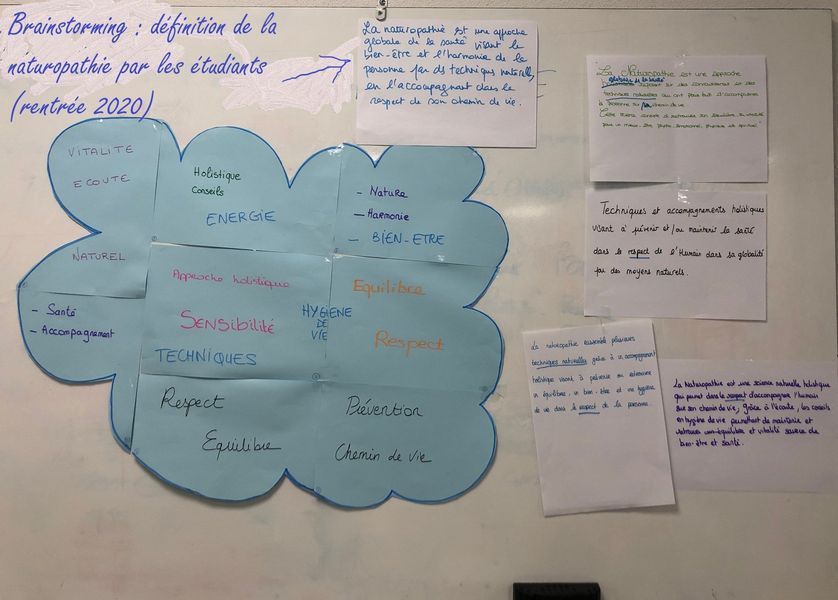 Brainstorming : définition de la
naturopathie par les étudiants
(rentrée 2020)
La naturopathie est une approche
globale de la santé visant le
bien-être et l'harmonie de la
personne par des techniques naturelles,
en l'accompagnant dans le
respect de son chemin de vie.
VITALITE
ECOUTE
NATUREL
- Santé
- Accompagnement
Holistique
Conseils
ENERGIE
- Nature
- Harmonie
- BIEN-ETRE
Approche holistique
SENSIBILITÉ
TECHNIQUES
HYGIENE
DE
VIE
Equilibre
Respect
Respect
Equilibre
Prévention
Chemin de vie
"La Naturopathie est une approche
globale de la santé
techniques naturelles
chemin de vie
Techniques et accompagnements holistiques
visant à prévenir et/ou maintenir la santé
dans le respect de l'Humain dans sa globalité
par des moyens naturels.
La naturopathie plusieurs
techniques naturelles grâce à un accompagnement
holistique visant à prévenir ou
un équilibre, un bien-être et une hygiène
de vie dans le respect de la personne.
La Naturopathie est une science naturelle holistique
qui permet dans le respect d'accompagner l'humain
sur son chemin de vie, grâce à l'écoute, les conseils
en hygiène de vie permettant de maintenir et
retrouver un équilibre et vitalité source de
bien-être et santé.